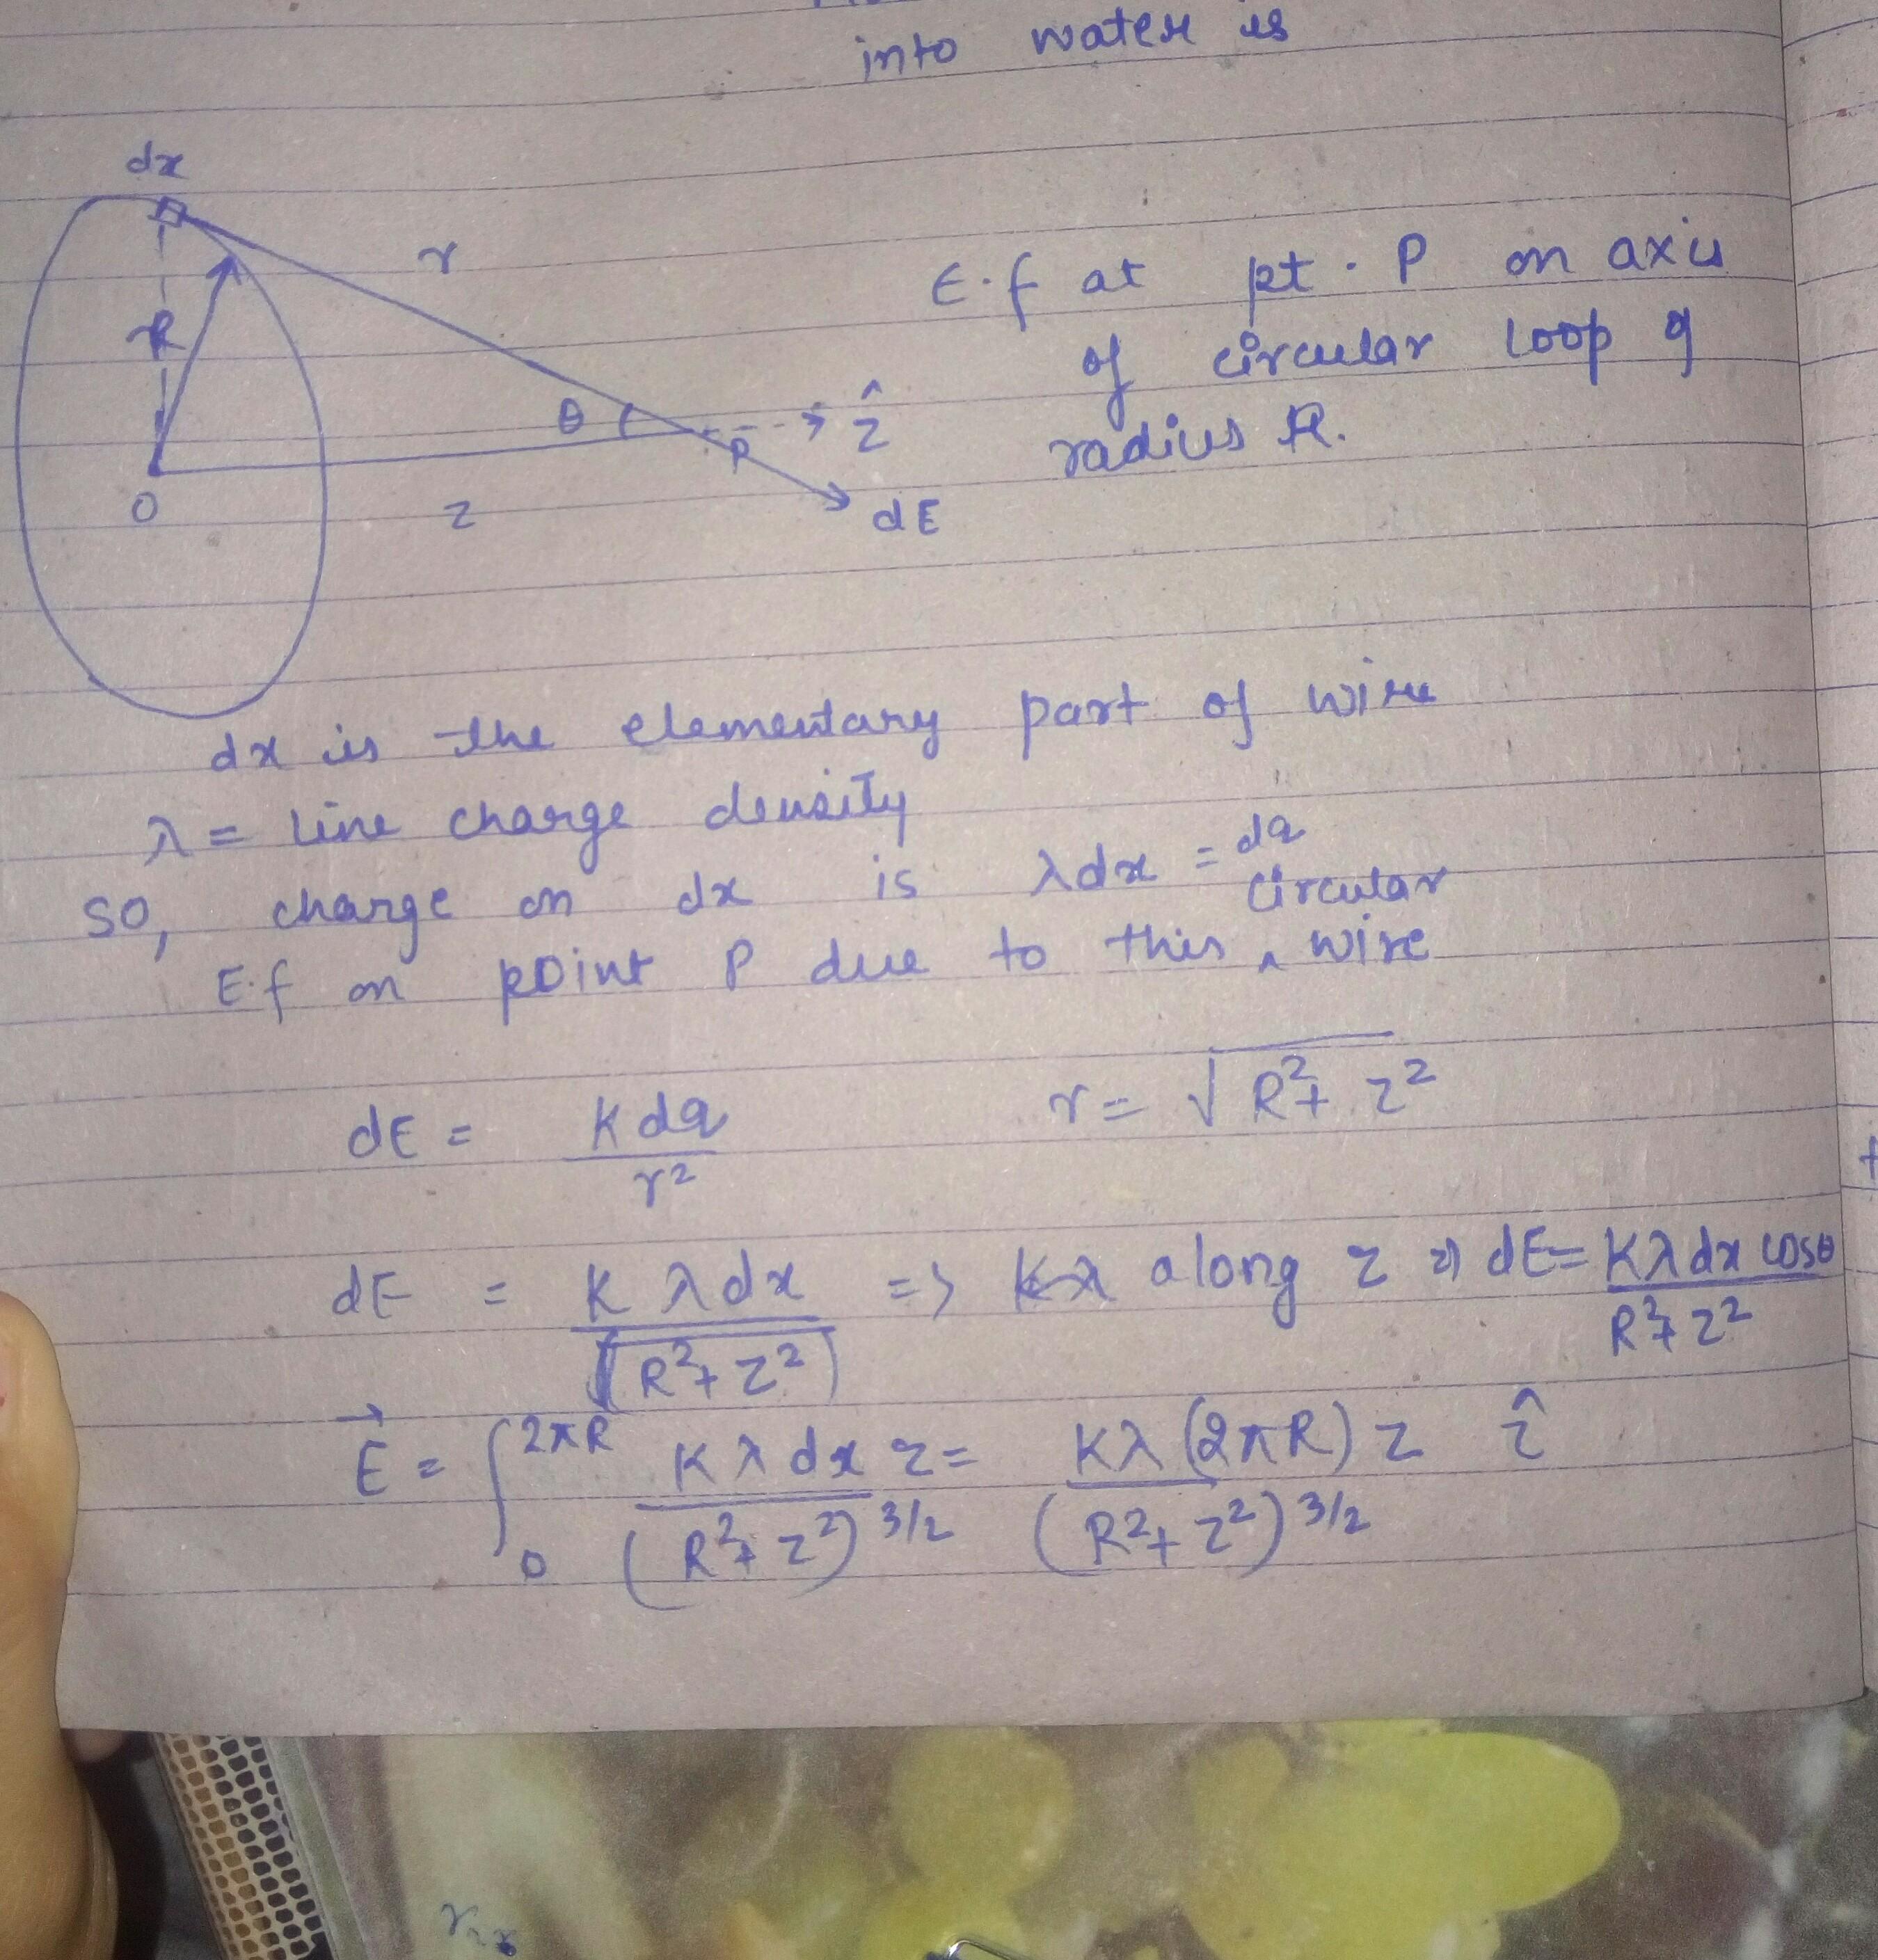 into water is
dx
r
R
θ
ẑ
P
O
z
dE
E.f at pt. P on axis
of circular loop of
radius R.
dx is the elementary part of wire
λ = line charge density
so, charge on dx is λdx = dq
circular
E.f on point P due to this ^ wire
dE = K dq / r² r = √(R² + z²)
dE = K λ dx / (R² + z²) => along z => dE = Kλ dx cosθ / R² + z²
E⃗ = ∫₀^2πR K λ dx z / (R² + z²)^3/2 = Kλ (2πR) z / (R² + z²)^3/2 ẑ